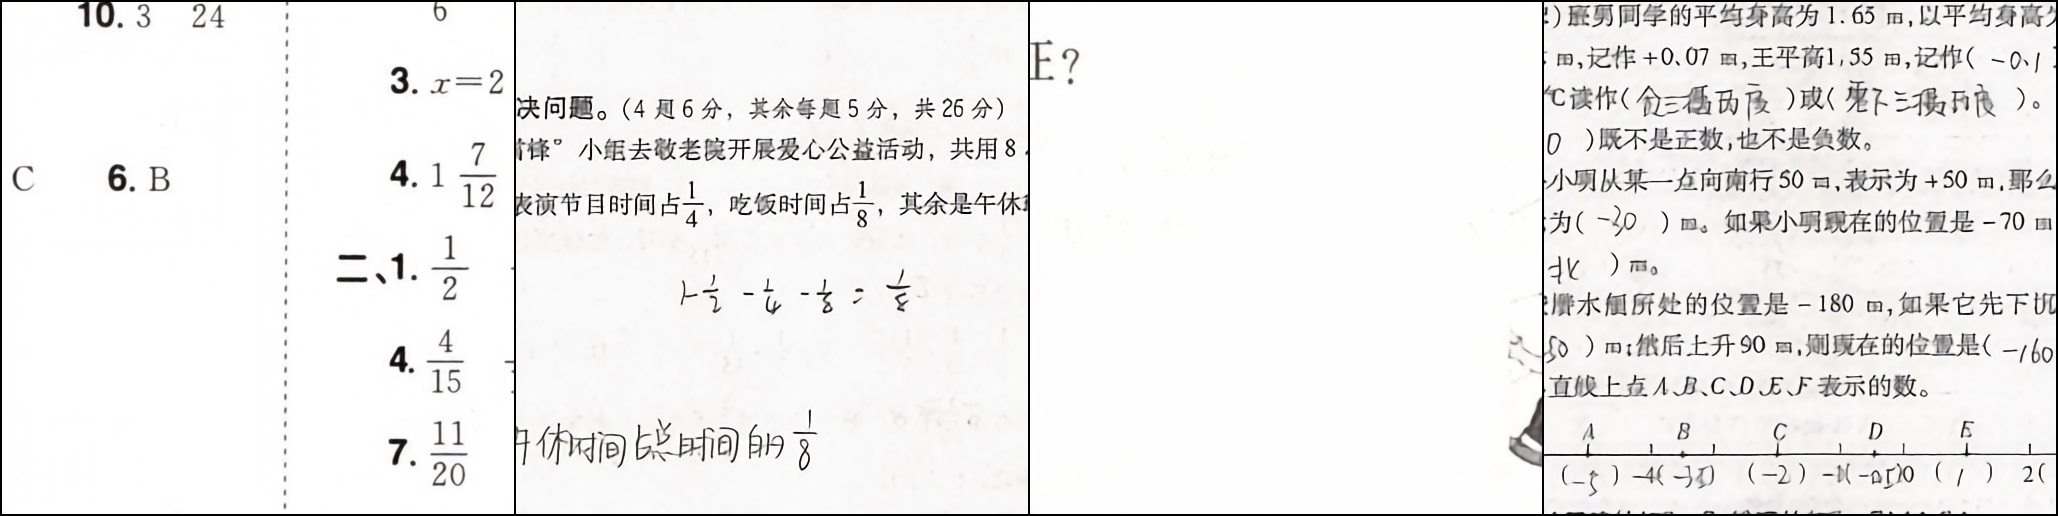 10. 3 24
C 6. B
6
3. x=2
4. 1 7/12
二、1. 1/2
4. 4/15
7. 11/20
决问题。(4题6分，其余每题5分，共26分)
锋”小组去敬老院开展爱心公益活动，共用8
表演节目时间占1/4，吃饭时间占1/8，其余是午休
1-1/2-1/4-1/8=1/8
午休时间占总时间的1/8
王?
)班男同学的平均身高为1.65 m,以平均身高为
m,记作+0.07 m,王平高1.55 m,记作( -0.1
℃读作( 负三摄氏度 )或( 零下三摄氏度 )。
0 )既不是正数,也不是负数。
小明从某一点向南行50 m,表示为+50 m,那么
为( -30 ) m。如果小明现在的位置是-70 m
北 ) m。
潜水艇所处的位置是-180 m,如果它先下沉
50 ) m;然后上升90 m,则现在的位置是( -160
直线上点A、B、C、D、E、F表示的数。
A B C D E
(-5) -4 (-3.5) (-2) -1 (-0.5) 0 ( 1 ) 2 (